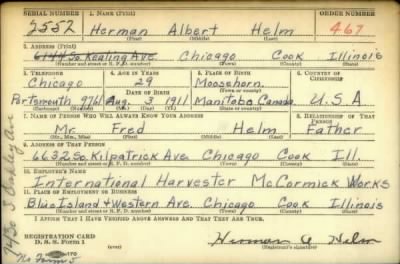 SERIAL NUMBER 1. NAME (Print) ORDER NUMBER
2552 Herman Albert Helm 467
(First) (Middle) (Last)
2. ADDRESS (Print)
6144 So. Kealing Ave. Chicago Cook Illinois
(Number and street or R. F. D. number) (Town) (County) (State)
3. TELEPHONE 4. AGE IN YEARS 5. PLACE OF BIRTH 6. COUNTRY OF CITIZENSHIP
Chicago 29 Moosehorn.
DATE OF BIRTH (Town or county)
Portsmouth 9761 Aug. 3 1911 Manitoba Canada. U.S.A
(Exchange) (No.) (Mo.) (Day) (Yr.) (State or country)
7. NAME OF PERSON WHO WILL ALWAYS KNOW YOUR ADDRESS 8. RELATIONSHIP OF THAT PERSON
Mr. Fred Helm Father
(Mr., Mrs., Miss) (First) (Middle) (Last)
9. ADDRESS OF THAT PERSON
6632 So. Kilpatrick Ave. Chicago Cook Ill.
(Number and street or R. F. D. number) (Town) (County) (State)
10. EMPLOYER'S NAME
International Harvester McCormick Works
11. PLACE OF EMPLOYMENT OR BUSINESS
Blue Island & Western Ave. Chicago Cook Illinois
(Number and street or R. F. D. number) (Town) (County) (State)
I AFFIRM THAT I HAVE VERIFIED ABOVE ANSWERS AND THAT THEY ARE TRUE.
REGISTRATION CARD
D. S. S. Form 1 Herman A Helm
(Registrant's signature)
No Form 5